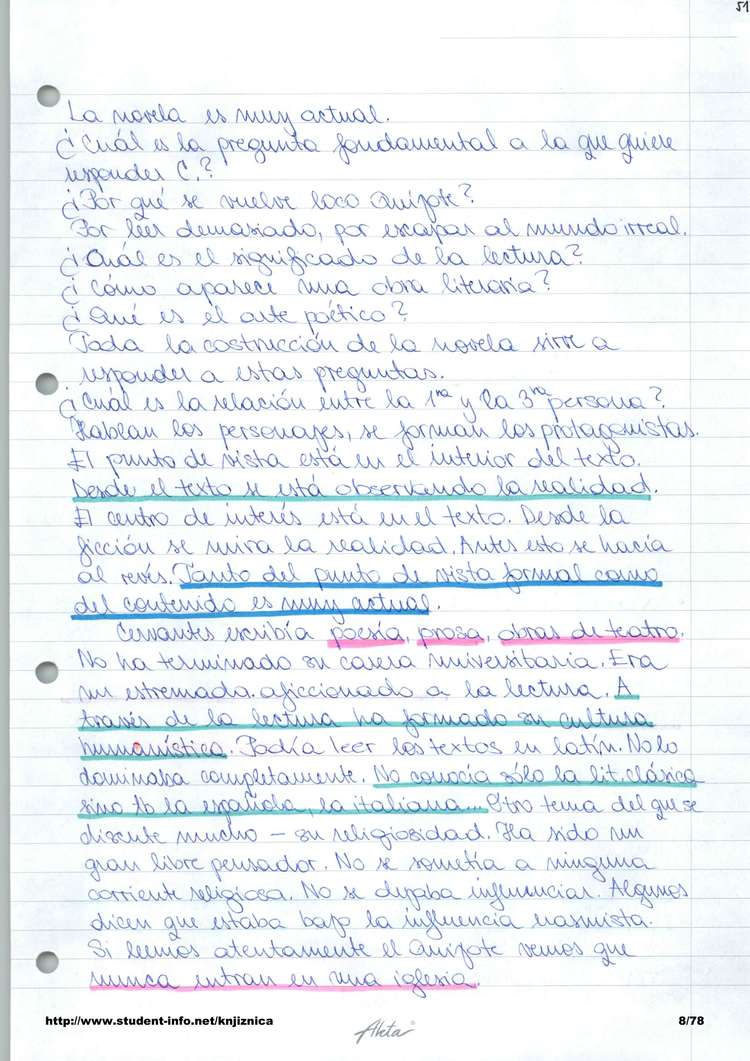 51
La novela es muy actual.
¿Cuál es la pregunta fondamental a la que quiere
responder C.?
¿Por qué se vuelve loco Quijote?
Por leer demasiado, por escapar al mundo irreal.
¿Cuál es el significado de la lectura?
¿Cómo aparece una obra literaria?
¿Qué es el arte poético?
Toda la costrucción de la novela sirve a
responder a estas preguntas.
¿Cuál es la relación entre la 1ra y la 3ra persona?
Hablan los personajes, se forman los protagonistas.
El punto de vista está en el interior del texto.
Desde el texto se está observando la realidad.
El centro de interés está en el texto. Desde la
ficción se mira la realidad. Antes esto se hacía
al revés. Tanto del punto de vista formal como
del contenido es muy actual.
Cervantes escribía poesía, prosa, obras de teatro.
No ha terminado su carera universitaria. Era
un estremada aficcionado a la lectura. A
través de la lectura ha formado su cultura
humanística. Podía leer los textos en latín. No lo
dominaba completamente. No conocía sólo la lit. clásica
sino tb la española, la italiana... Otro tema del que se
discute mucho – su religiosidad. Ha sido un
gran libre pensador. No se sometía a ninguna
corriente religiosa. No se dejaba influnciar. Algunos
dicen que estaba bajo la influencia erasmista.
Si leemos atentamente el Quijote vemos que
nunca entran en una iglesia.
http://www.student-info.net/knjiznica
Akta
8/78